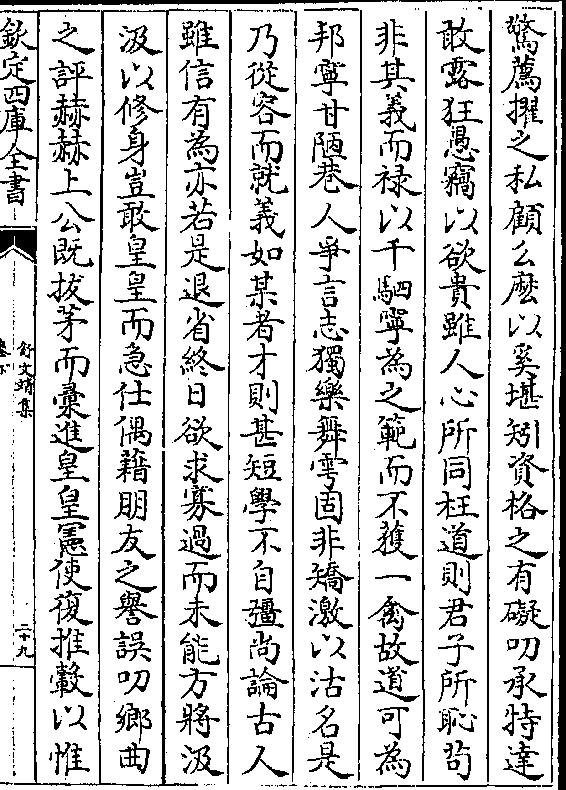 驚薦擢之私顧么麽以奚堪矧資格之有礙叨承特達
敢露狂愚竊以欲貴雖人心所同枉道則君子所恥茍
非其義而禄以千駟寧為之範而不獲一禽故道可為
邦寧甘陋巷人爭言志獨樂舞雩固非矯激以沽名是
乃從容而就義如某者才則甚短學不自彊尚論古人
雖信有為亦若是退省終日欲求寡過而未能方將汲
汲以修身豈敢皇皇而急仕偶藉朋友之譽誤叨鄉曲
之評赫赫上公既拔茅而彙進皇皇憲使復推轂以惟
欽定四庫全書
舒文靖集
卷下
二十九